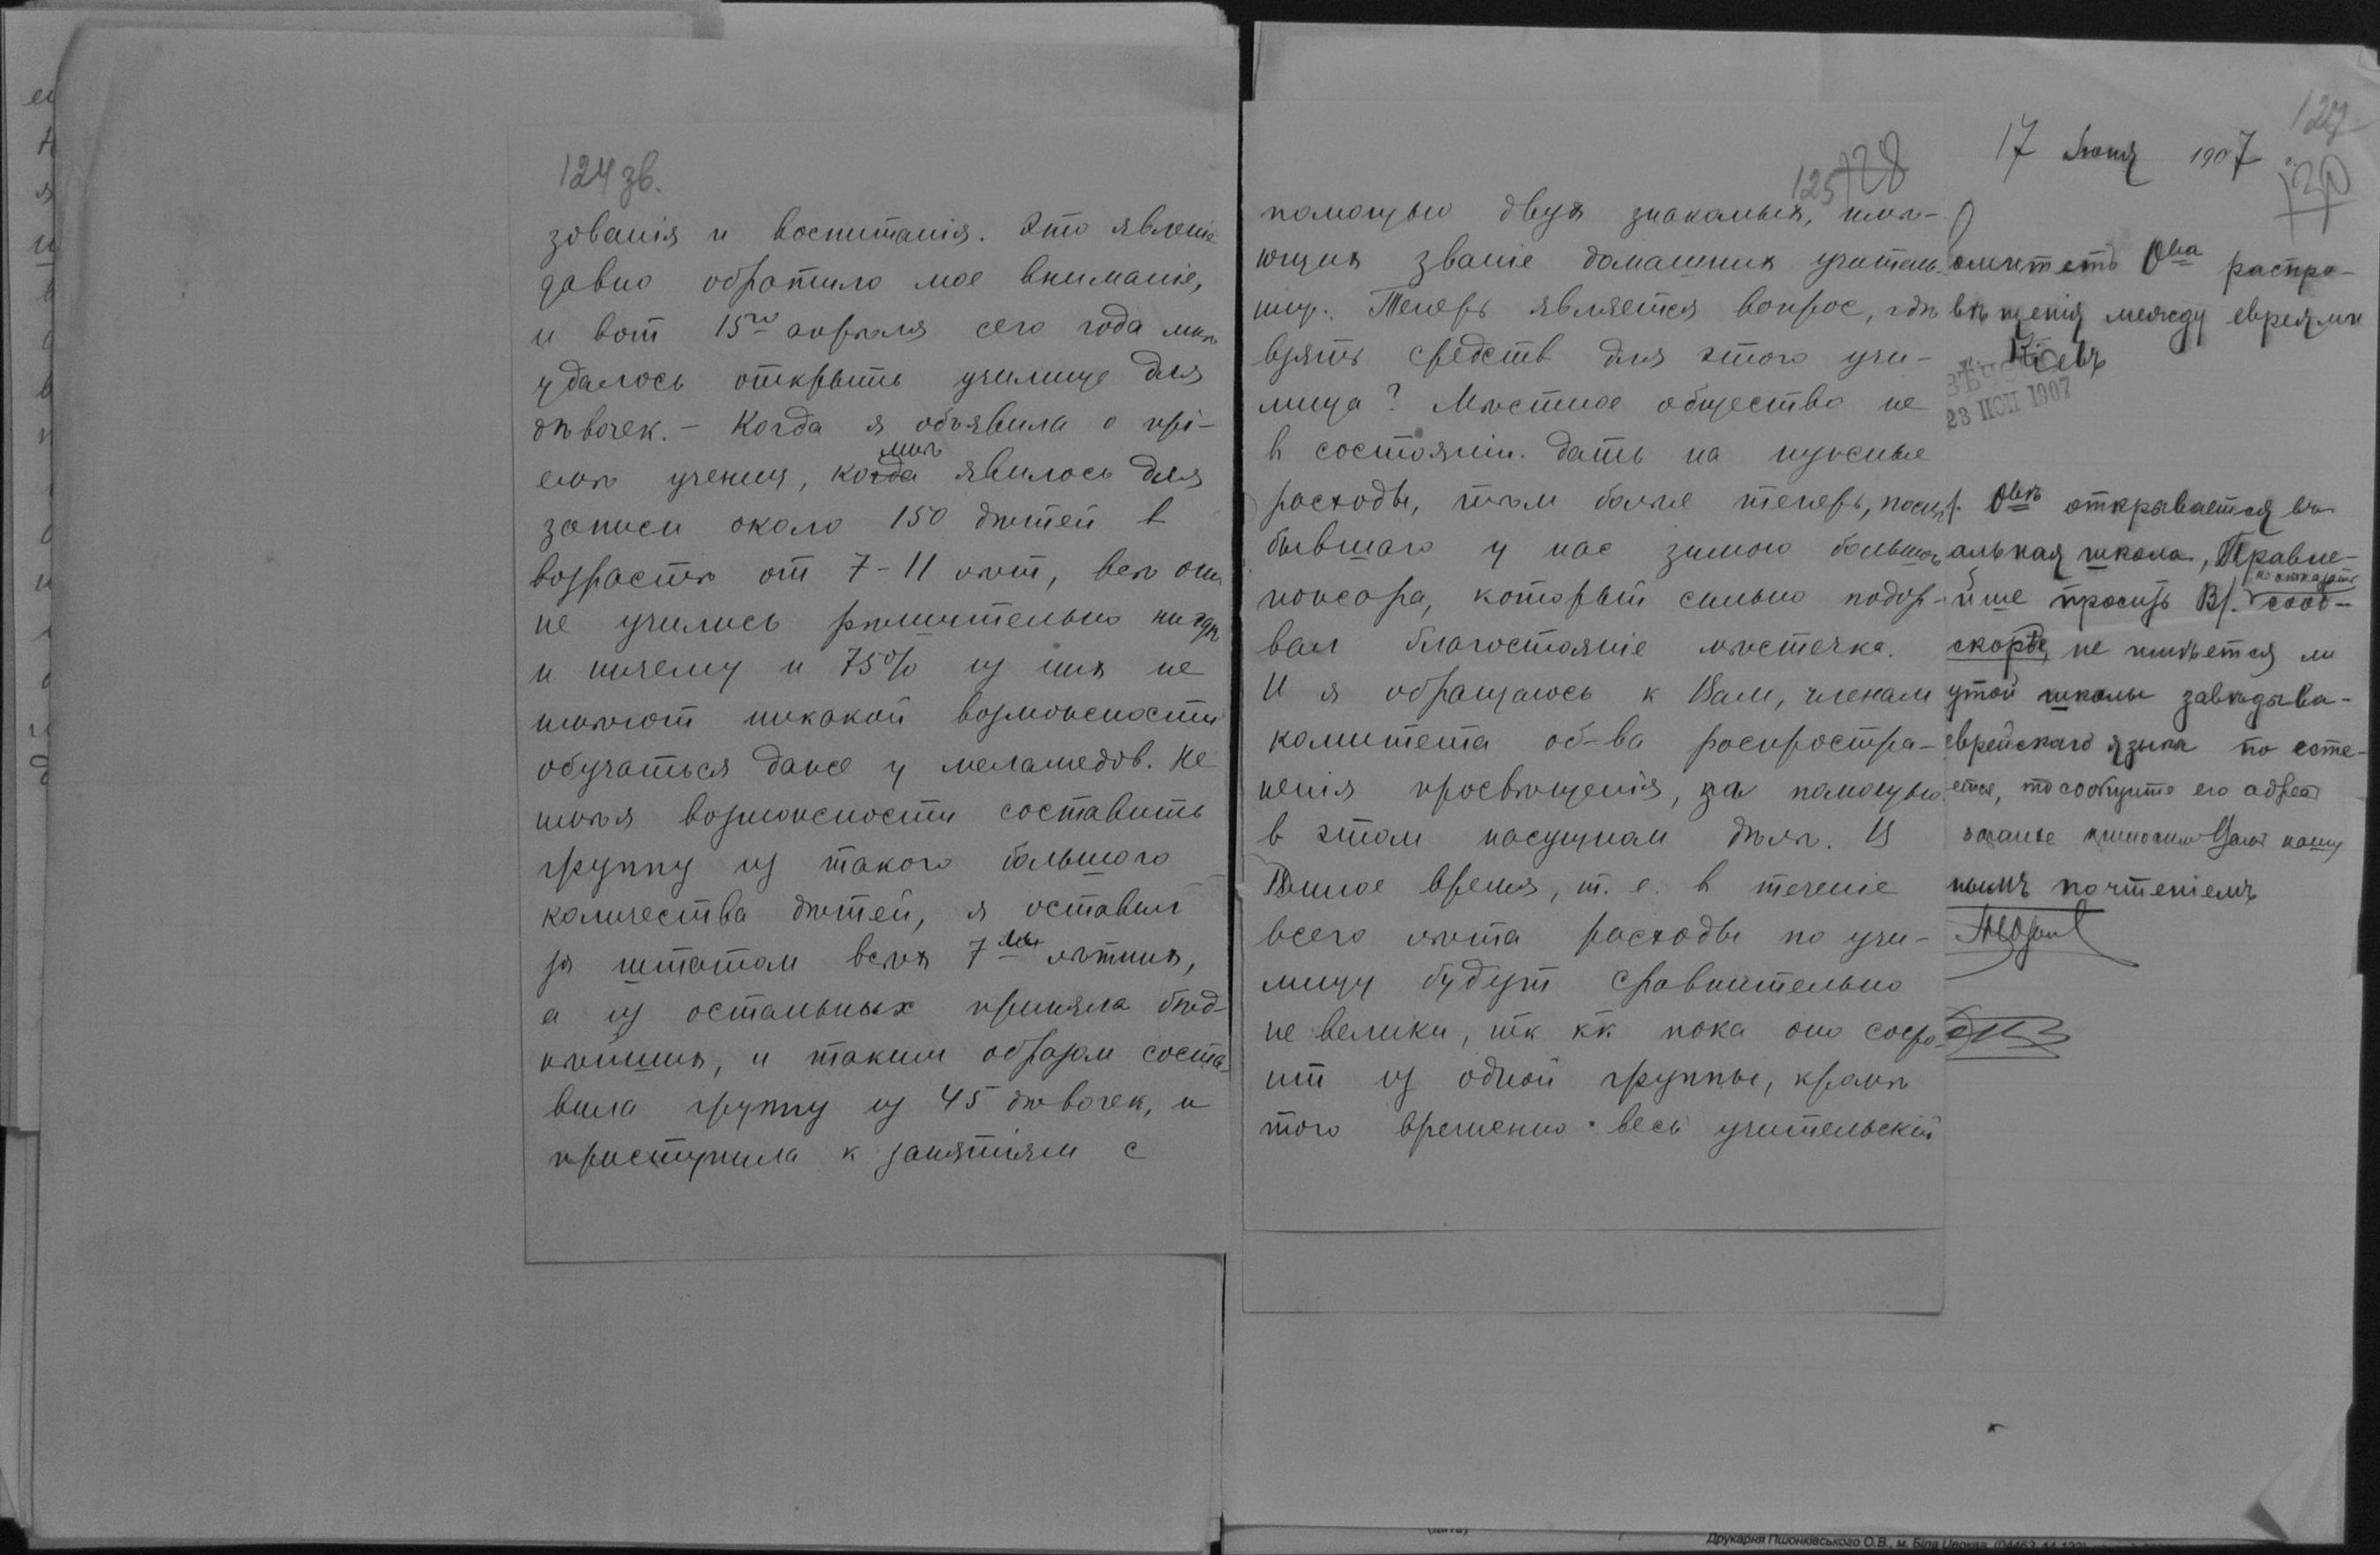 124 зв.
зованія и воспитанія. Это явленіе
давно обратило мое вниманіе,
и вот 15го апрѣля сего года мнѣ
удалось открыть училище для
дѣвочек. – Когда я объявила о прі-
емѣ учениц, когда мнѣ явилось для
записи около 150 дѣтей в
возрастѣ от 7-11 лѣт, всѣ они
не учились рѣшительно нигдѣ
и ничему и 75% из них не
имѣют никакой возможности
обучаться даже у меламедов. Не
имѣя возможности составить
группу из такого большого
количества дѣтей, я оставила
за штатом всѣх 7ми лѣтних,
а из остальных приняла бѣд-
нѣйших, и таким образом соста-
вила группу из 45 дѣвочек, и
приступила к занятіям с
125 128
помощью двух знакомых, имѣ-
ющих званіе домашних учитель-
ниц. Теперь является вопрос, гдѣ
взять средств для этого учи-
лища? Мѣстное общество не
в состояніи дать на нужные
расходы, тѣм болѣе теперь, послѣ
бывшаго у нас зимою большого
пожара, который сильно подор-
вал благостояніе мѣстечка.
И я обращаюсь к Вам, членам
комитета об-ва распростра-
ненія просвѣщенія, за помощью
в этом насущном дѣлѣ. В
Данное время, т. е. в теченіе
всего лѣта расходы по учи-
лищу будут сравнительно
не велики, тк кк пока оно состо-
ит из одной группы, кромѣ
того временно весь учительскій
127
130
17 Іюня 1907 г.
омитетъ Ова распро-
вѣщенія между евреями
Кіевъ
23 ІЮН 1907
Овѣ открывается въ
альная школа, Правле-
йше проситъ Вас не отказать сооб-
скорѣе, не имѣется ли
утой школы завѣдыва-
еврейскаго языка по есте-
ется, то сообщите его адрес
ранѣе приносимъ Вамъ нашу
нымъ почтеніемъ
Друкарня Пшонківського О.В., м. Біла Церква, (04463-44-122)